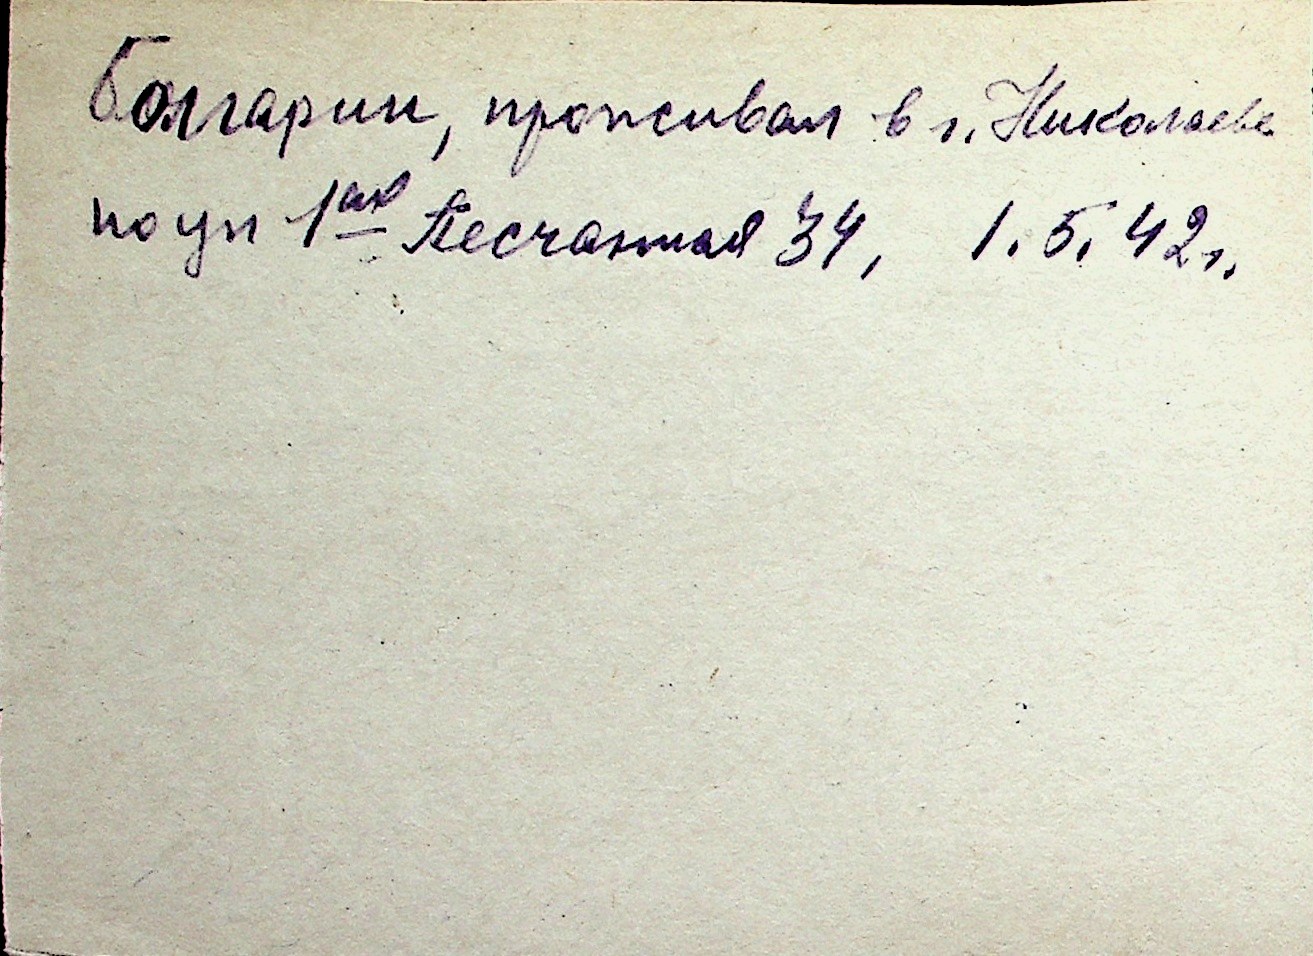 Болгарин, проживал в г. Николаеве
по ул 1ая Песчанная 34, 1.5.42г.